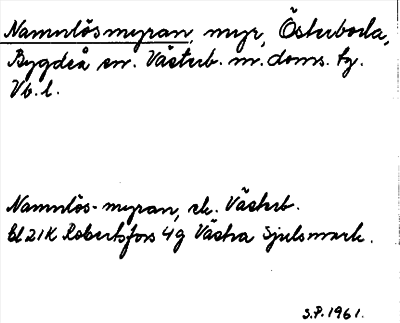 Namnlösmyran, myr, Österboda,
Bygdeå sn. Västerb. n. doms. tg.
Vb. l.
Namnlös-myran, ek. Västerb.
bl 21K Robertsfors 4g Västra Sjulsmark.
S.P. 1961.